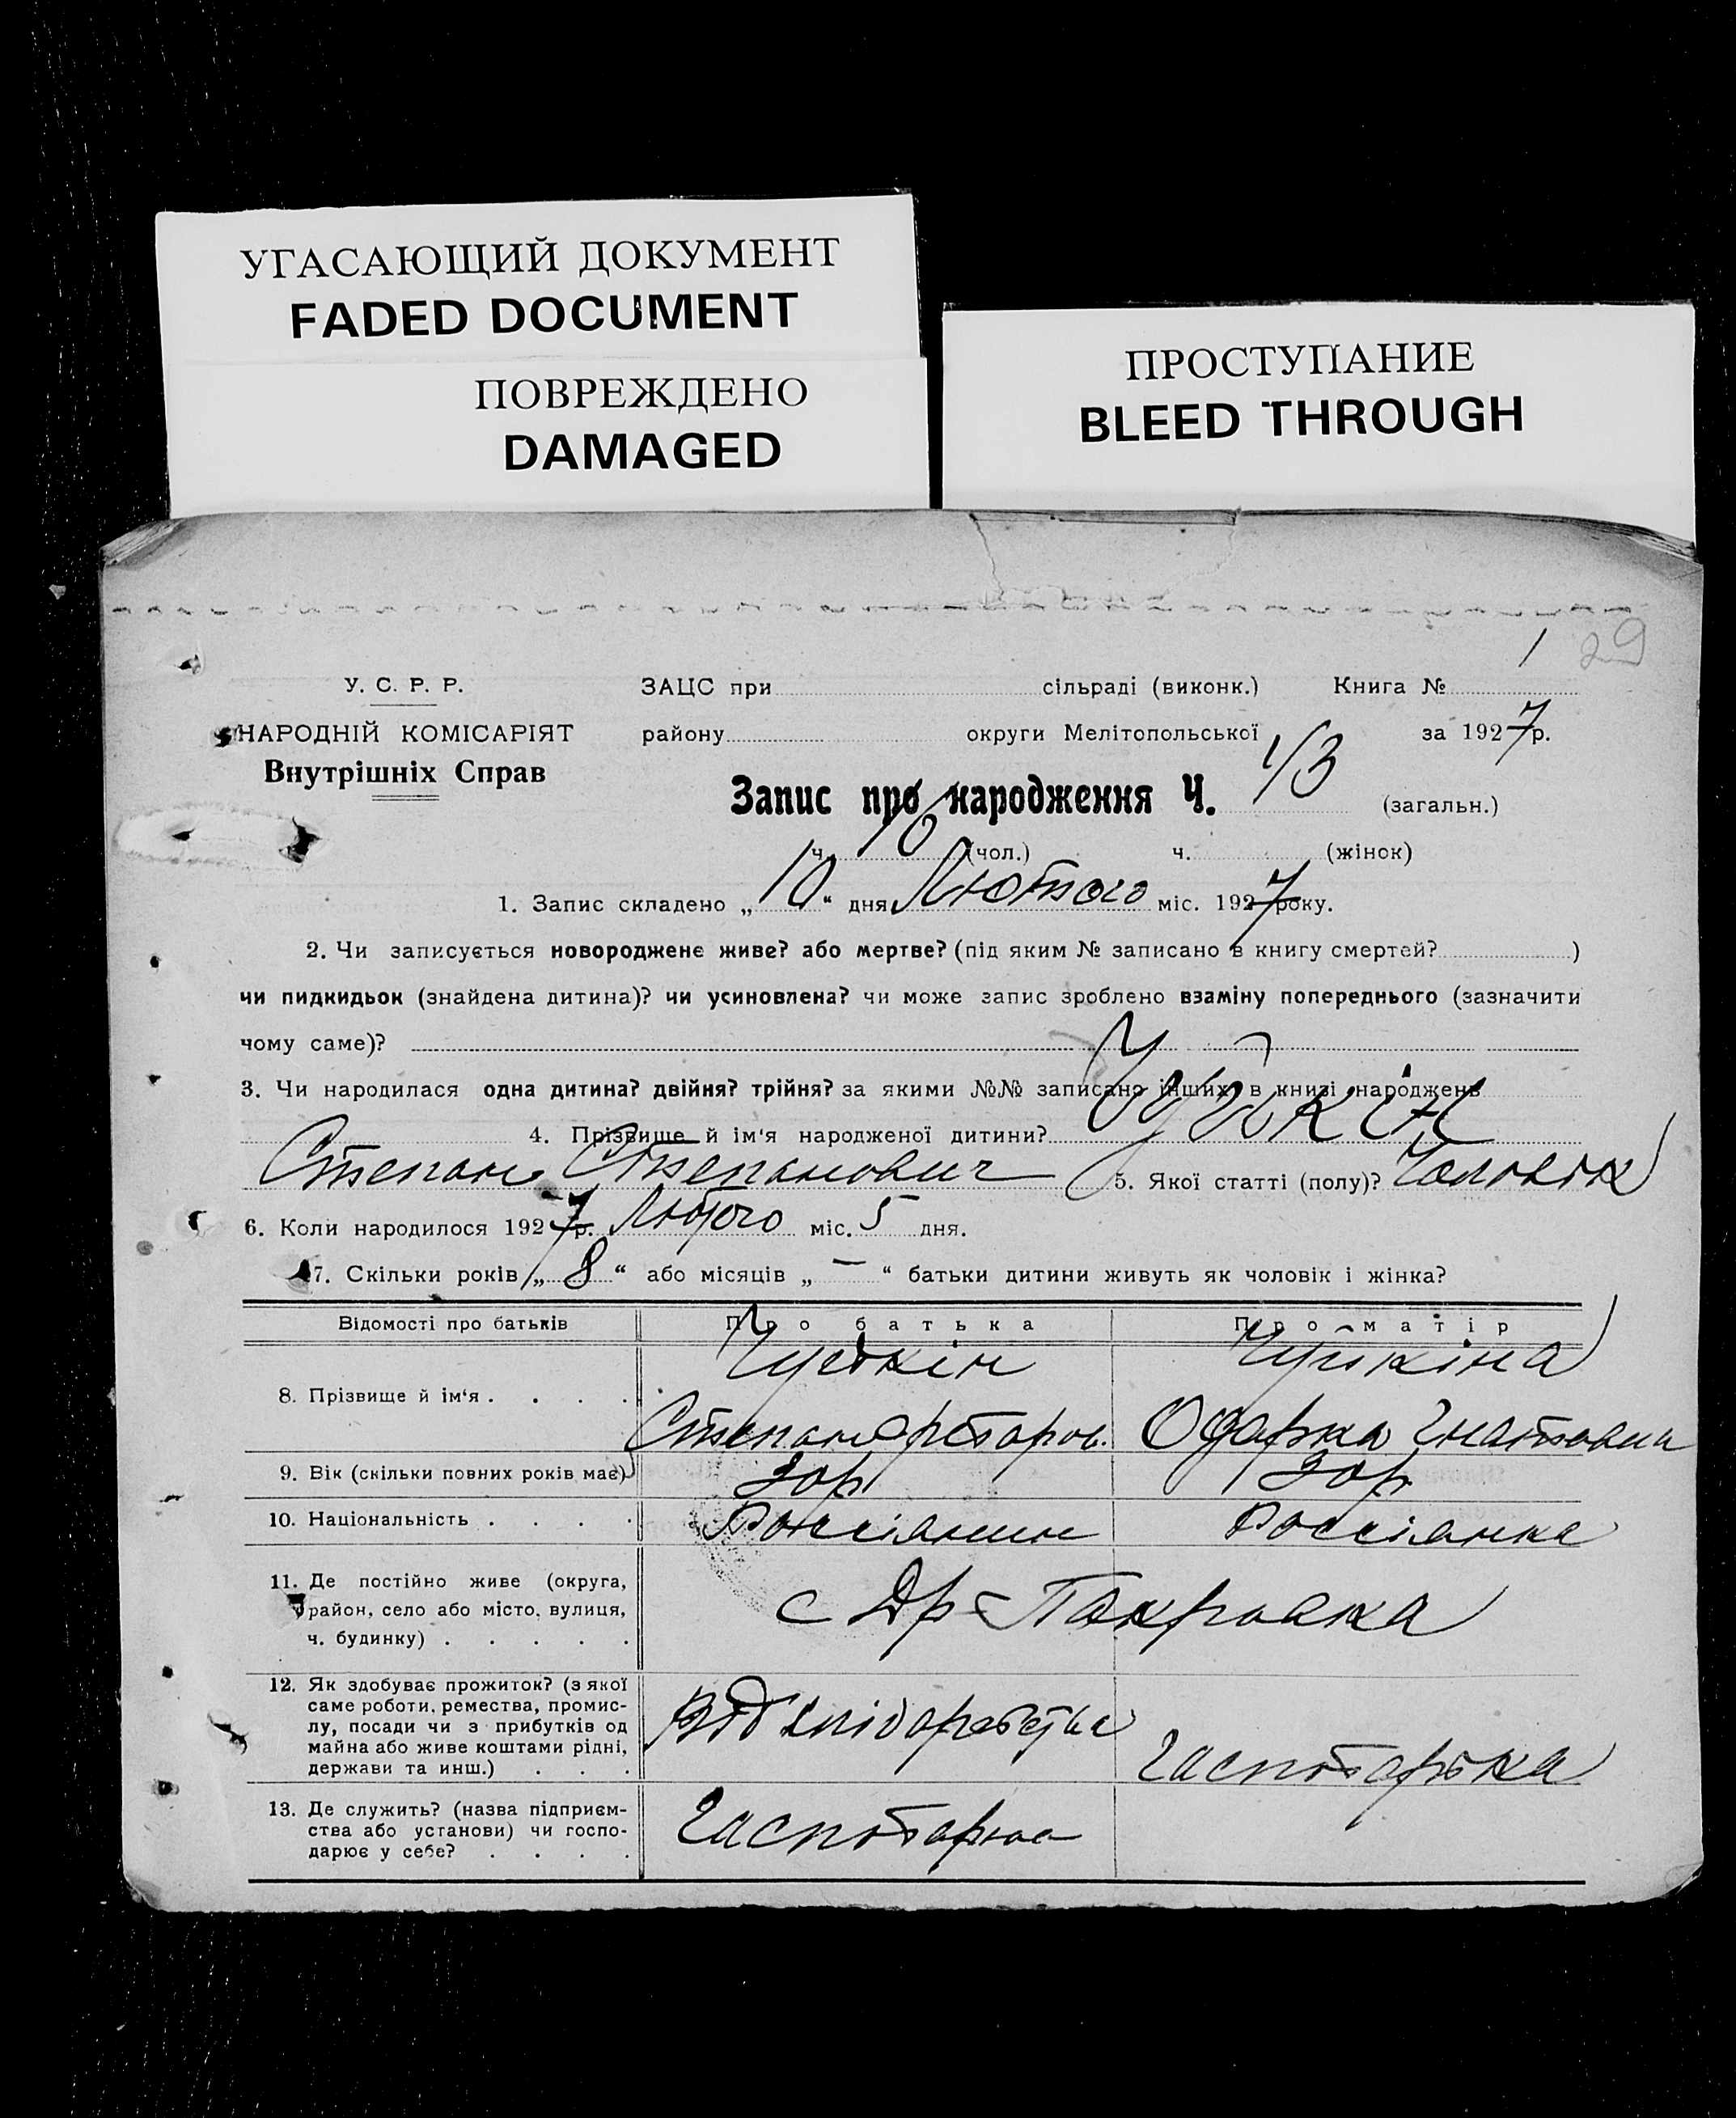 УГАСАЮЩИЙ ДОКУМЕНТ
FADED DOCUMENT
ПОВРЕЖДЕНО
DAMAGED
ПРОСТУПАНИЕ
BLEED THROUGH
1 29
У. С. Р. Р.
НАРОДНІЙ КОМІСАРІЯТ
Внутрішніх Справ
ЗАЦС при сільраді (виконк.) Книга №
району округи Мелітопольської за 1927 р.
Запис про народження Ч. 13 (загальн.)
ч. 10 (чол.) ч. (жінок)
1. Запис складено „10“ дня Лютого міс. 1927 року.
2. Чи записується новороджене живе? або мертве? (під яким № записано в книгу смертей? )
чи пидкидьок (знайдена дитина)? чи усиновлена? чи може запис зроблено взаміну попереднього (зазначити
чому саме)?
3. Чи народилася одна дитина? двійня? трійня? за якими №№ записано інших в книзі народжень
4. Прізвище й ім'я народженої дитини?
Степан Степанович 5. Якої статті (полу)? Чоловік
6. Коли народилося 1927 р. Лютого міс. 5 дня.
7. Скільки років „8“ або місяців „—“ батьки дитини живуть як чоловік і жінка?
Відомості про батьків Про батька Про матір
8. Прізвище й ім'я . . . .
Степан Одарка Гнатовна
9. Вік (скільки повних років має)
10. Національність . . . . Россіянин Россіянка
11. Де постійно живе (округа,
район, село або місто, вулиця,
ч. будинку) . . . . .
с Др-Покровка
12. Як здобуває прожиток? (з якої
саме роботи, ремества, промис-
лу, посади чи з прибутків од
майна або живе коштами рідні,
держави та инш.) . . .
Від
13. Де служить? (назва підприєм-
ства або установи) чи госпо-
дарює у себе? . . . .